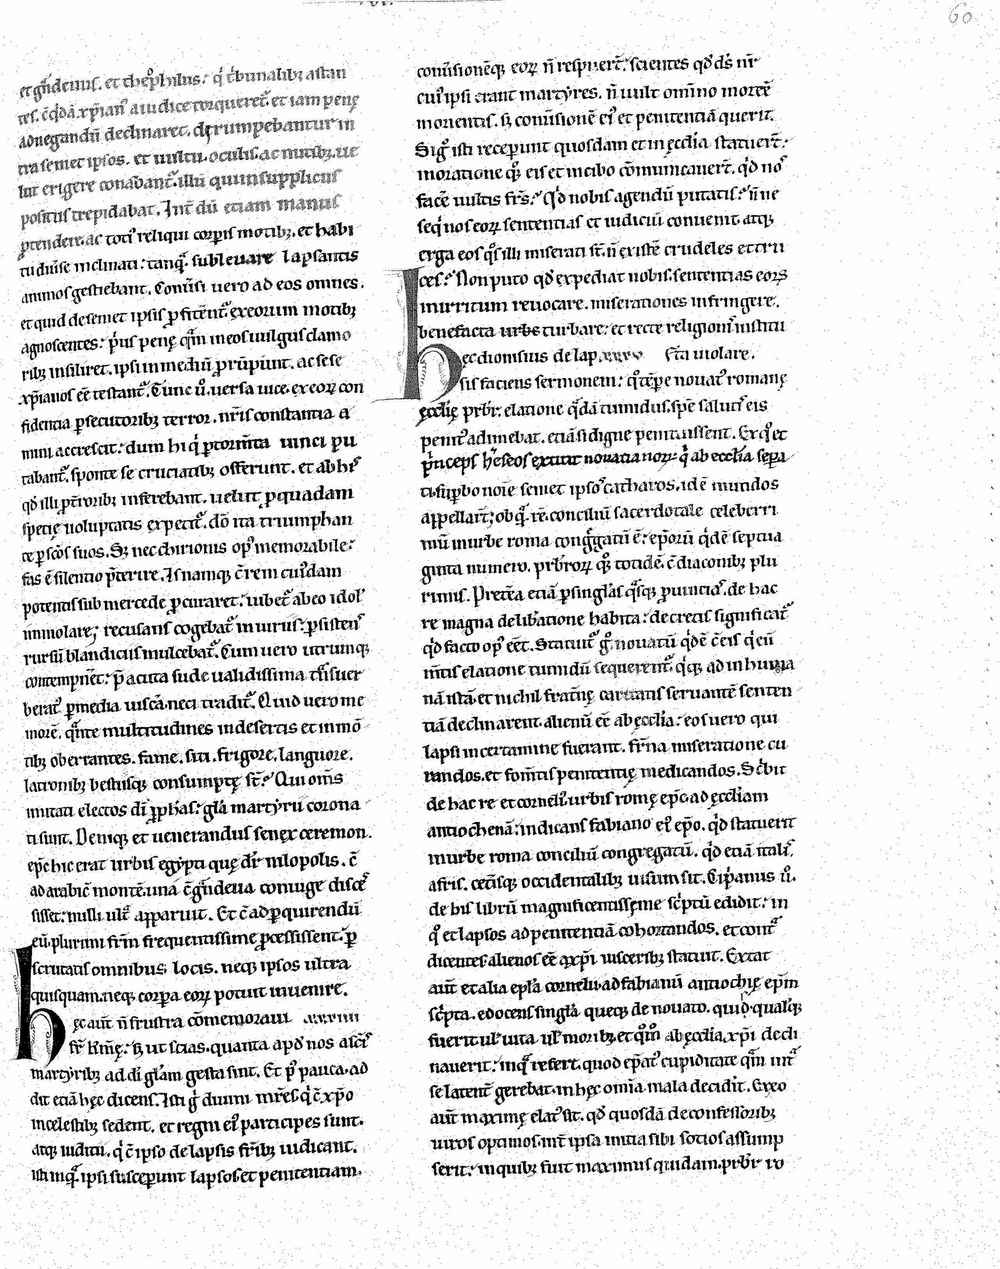 60
et ingenuus. et theophilus. qi tribunalibus astan
tes. cum quidam xpianus a iudice torqueretur. et iam pene
ad negandum declinaret. disrumpebantur in
tra semet ipsos. et uultu. oculis. ac nutibus. ue
lut erigere conabantur. illum qui in supplicus
positus trepidabat. Interdum etiam manus
ptendere. ac toti reliqui corporis motibus. et habi
tu diuise inclinati: tanquam subleuare lapsantis
animos gestiebant. Conuersi uero ad eos omnes.
et quid de semet ipsis profiterentur. ex eorum motibus
agnoscentes: prius pene quam in eos uulgus clamo
ribus insiliret. ipsi in medium prorumpunt. ac se se
xpianos esse testantur. Tunc uero uersa uice. ex eorum con
fidentia persecutoribus terror. nris constantia a
nimi accrescit: dum hi qui per tormenta iunci pu
tabantur. sponte se cruciatibus offerunt. et ab his
qd illi pro terroribus inferebant. uelut pro quadam
specie uoluptatis expecitur. deo ita triumphan
te per scos suos. Sed nec chirionis opus memorabile:
fas est silentio preterire. Is namque cum rem cuiusdam
potentis sub mercede procuraret: iubetur ab eo idolis
immolare; recusans cogebatur iniuriis: persistens
rursum blandiciis mulcebatur. Cum uero utrumque
contempneret: preacuta sude ualidissima transuer
beratus per media uiscera. neci traditur. Quid uero me
morem. quante multitudines in desertis et in mon
tibus oberrantes. fame. siti. frigore. languore.
latronibus bestiisque consumpte sunt? Qui omnes
imitati electos dei prophetas: gloria martyrii corona
ti sunt. Denique et uenerandus senex ceremon.
epc hic erat urbis egypti que dicitur nilopolis. cum
ad arabicum montem. una cum grandeua coniuge disces
sisset: nulli ultra apparuit. Et cum ad perquirendum
eum. plurimi frum frequentissime processissent. per
scrutatis omnibus locis. neque ipsos ultra
quisquam. neque corpora eorum potuit inuenire.
hec autem non frustra commemoraui
fr kme: sed ut scias. quanta apud nos a scis
martyribus ad dei gloriam gesta sint. Et post pauca. ad
dit etiam hec dicens. Isti ergo diuini martyres qui cum xpo
in celestibus sedent. et regni eius participes sunt.
atque iudicii. qui cum ipso de lapsis fribus iudicant.
isti inquam. ipsi susceperunt lapsos. et penitentiam.
conuersionemque eorum non respuerunt: scientes quod ds nr
cuius ipsi erant martyres. non uult omnino mortem
morientis. sed conuersionem eius et penitentiam querit.
Si ergo isti receperunt quosdam et in ecclia statuerunt:
in oratione quoque eis et in cibo communicauerunt. quid nos
facere uultis frs? Quid nobis agendum putatis? non ne
sequi nos eorum sententias et iudicium conuenit. atque
erga eos quos illi miserati sunt. non existere crudeles et tru
ces? Non puto quod expediat nobis. sententias eorum
in irritum reuocare. miserationes infringere.
benefacta urbe turbare: et recte religionis institu
hec dionisius de lap. ta uiolare.
sis faciens sermonem: quo tempore nouatus romane
ecclie prbr. elatione quadam tumidus. spem salutis eis
penitus adimebat. etiam si digne penituissent. Ex quo et
princeps hereseos extitit nouatianorum: qui ab ecclesia separa
ti. superbo noie semet ipsos catharos. idem mundos
appellarunt; ob quam rem. concilium sacerdotale celeberri
mum in urbe roma congregatum est: eporum quidem septua
ginta numero. prbrorum quoque totidem. cum diaconibus plu
rimis. Preterea etiam per singulas quasque prouincias. de hac
re magna deliberatione habita: decretis significatur
quid facto opus esset. Statuitur ergo nouatum quidem cum eis qui eum
mentis elatione tumidum sequerentur. quique ad inhuma
nam istam. et nichil fraterne caritatis seruantem senten
tiam declinarent. alienum esse ab ecclia: eos uero qui
lapsi in certamine fuerant. frna miseratione cu
randos. et fomentis penitentie medicandos. Scribit
de hac re et cornelius urbis rome epc ad eccliam
antiochenam: indicans fabiano eius epo. quid statuerit
in urbe roma concilium congregatum. quid etiam italis.
afris. ceterisque occidentalibus uisum sit. Ciprianus uero.
de his librum magnificentissime scriptum edidit: in
quo et lapsos ad penitentiam cohortandos. et contra
dicentes alienos esse a xpi uisceribus statuit. Extat
autem et alia epla cornelii ad fabianum antiochie epm
scripta. edocens singula queque de nouato. quid qualisque
fuerit uel uita uel moribus. et quomodo ab ecclia xpi decli
nauerit: in qua refert. quod epatus cupiditate quam intra
se latenter gerebat. in hec omia mala decidit. Ex eo
autem maxime elatus sit. quod quosdam de confessoribus
uiros optimos. inter ipsa initia sibi sotios assump
serit: in quibus fuit maximus quidam. prbr ro